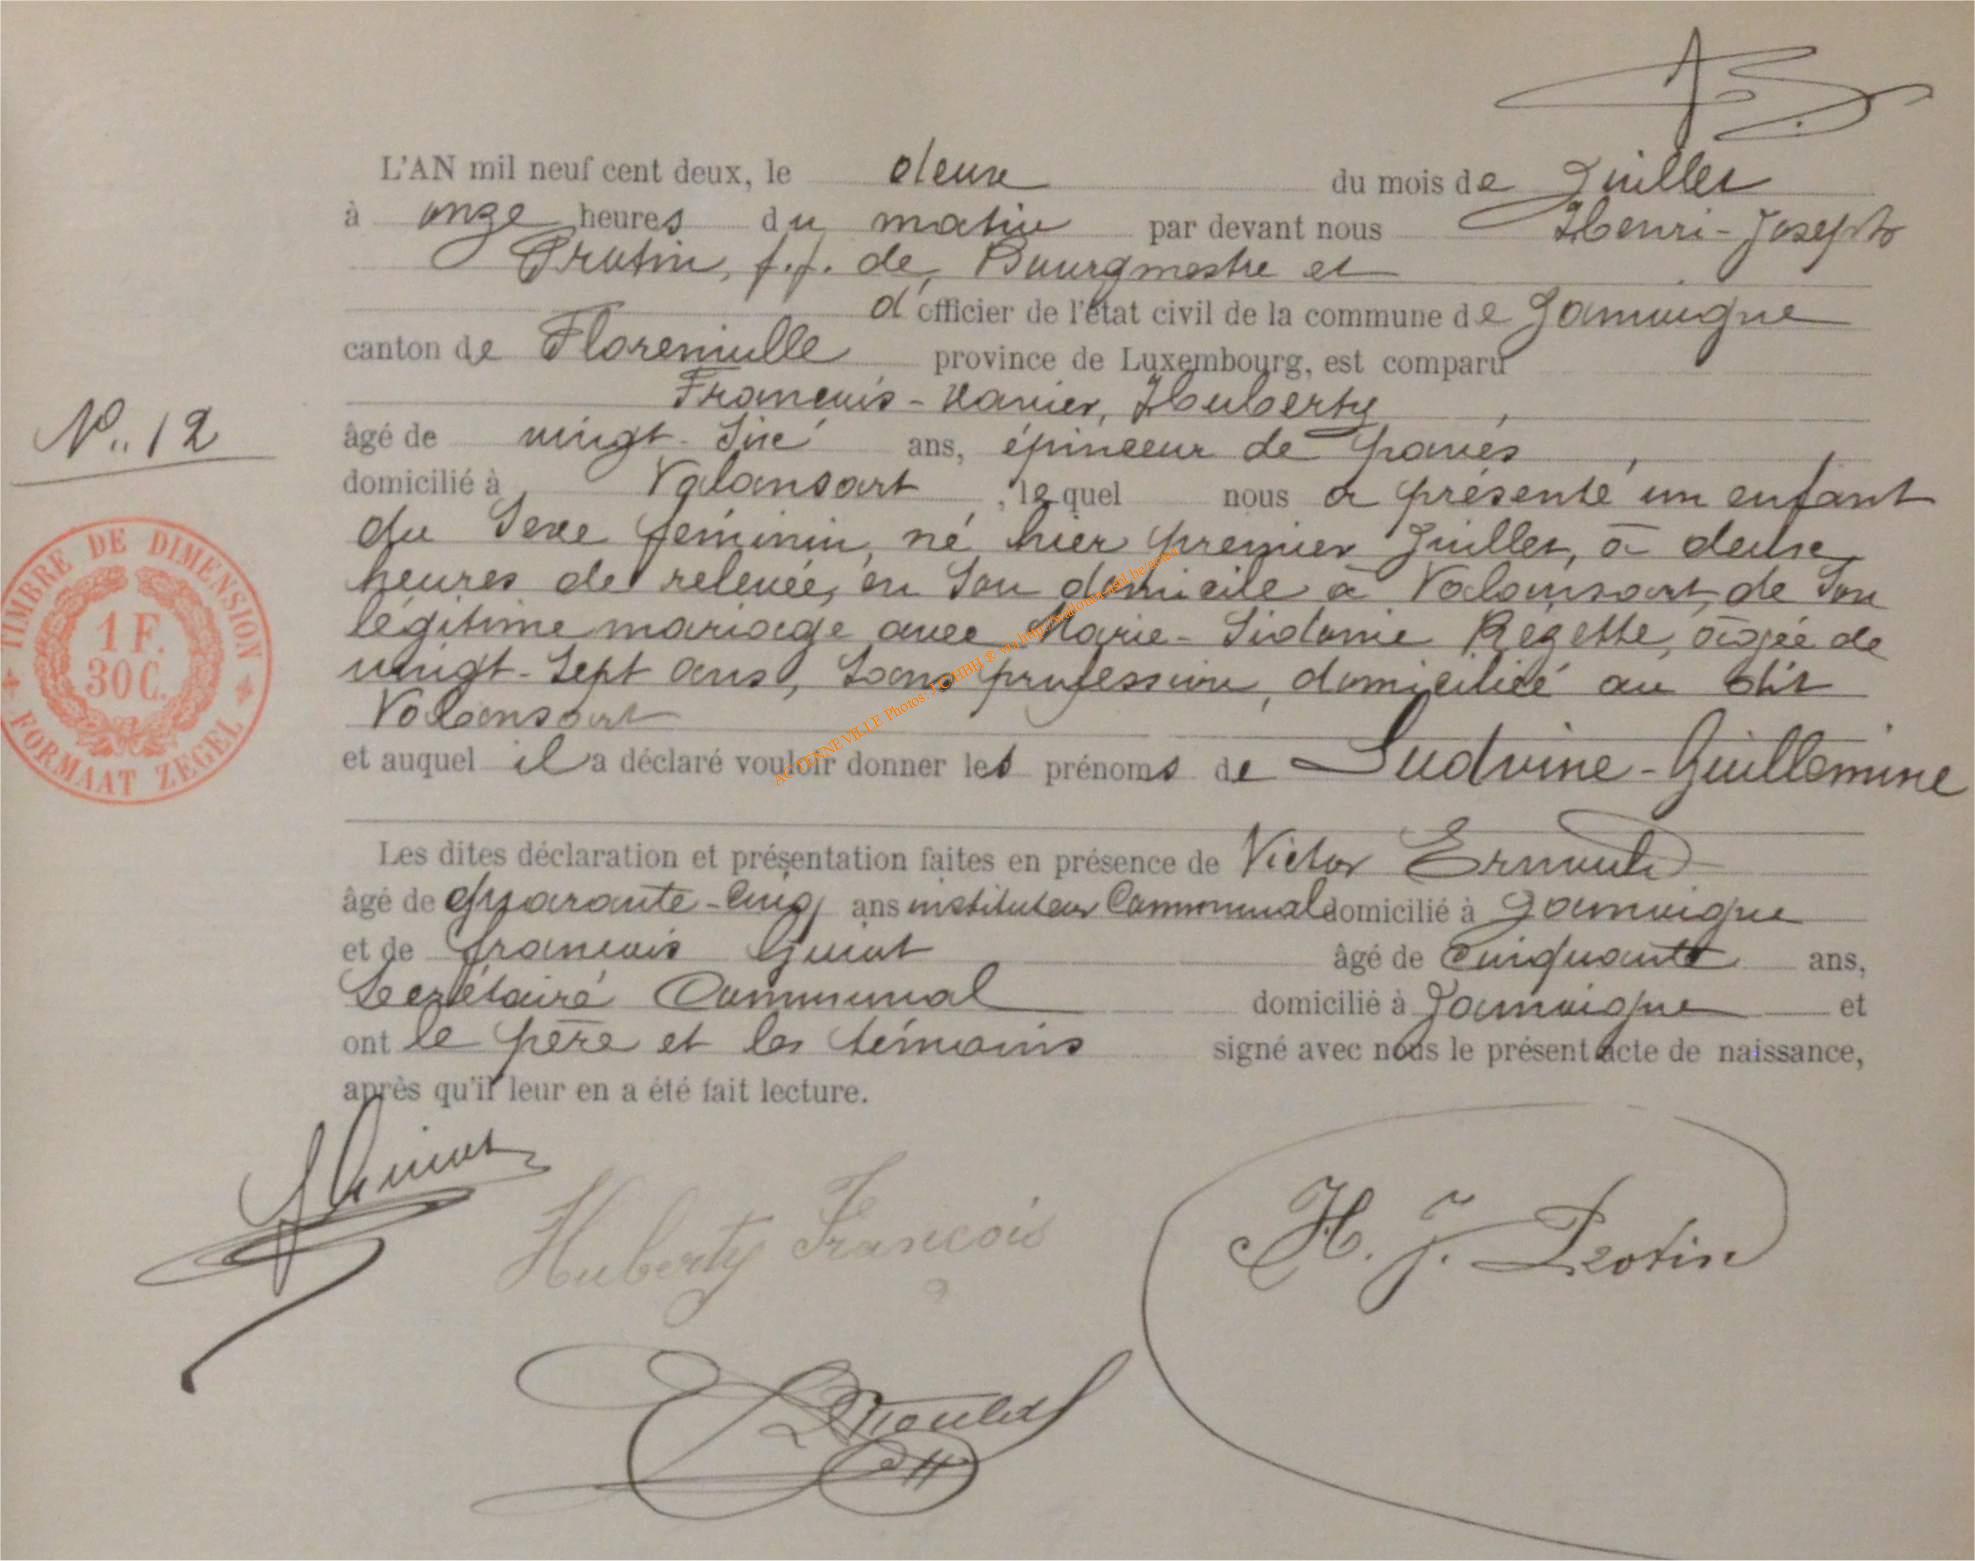 L'AN mil neuf cent deux, le deux du mois de Juillet
à onze heures du matin par devant nous Henri-Joseph
Protin, f.f. de Bourgmestre et
d'officier de l'état civil de la commune de Jamoigne
canton de Florenville province de Luxembourg, est comparu
François-Xavier, Huberty,
N° 12
âgé de vingt-six ans, épinceur de pavés,
domicilié à Valansart, lequel nous a présenté un enfant
du sexe féminin, né hier premier Juillet, à deux
heures de relevée, en son domicile à Valansart, de son
légitime mariage avec Marie-Sidonie Rézette, âgée de
vingt-sept ans, sans profession, domiciliée au dit
Valansart
et auquel il a déclaré vouloir donner les prénoms de Ludvine-Guillemine
TIMBRE DE DIMENSION
1 F.
30 C.
FORMAAT ZEGEL
Les dites déclaration et présentation faites en présence de Victor Ernould
âgé de quarante-cinq ans instituteur Communal domicilié à Jamoigne
et de françois Guiot âgé de cinquante ans,
Secrétaire Communal domicilié à Jamoigne et
ont le père et les témoins signé avec nous le présent acte de naissance,
après qu'il leur en a été fait lecture.
Guiot
Huberty François
H. J. Protin
Ernould